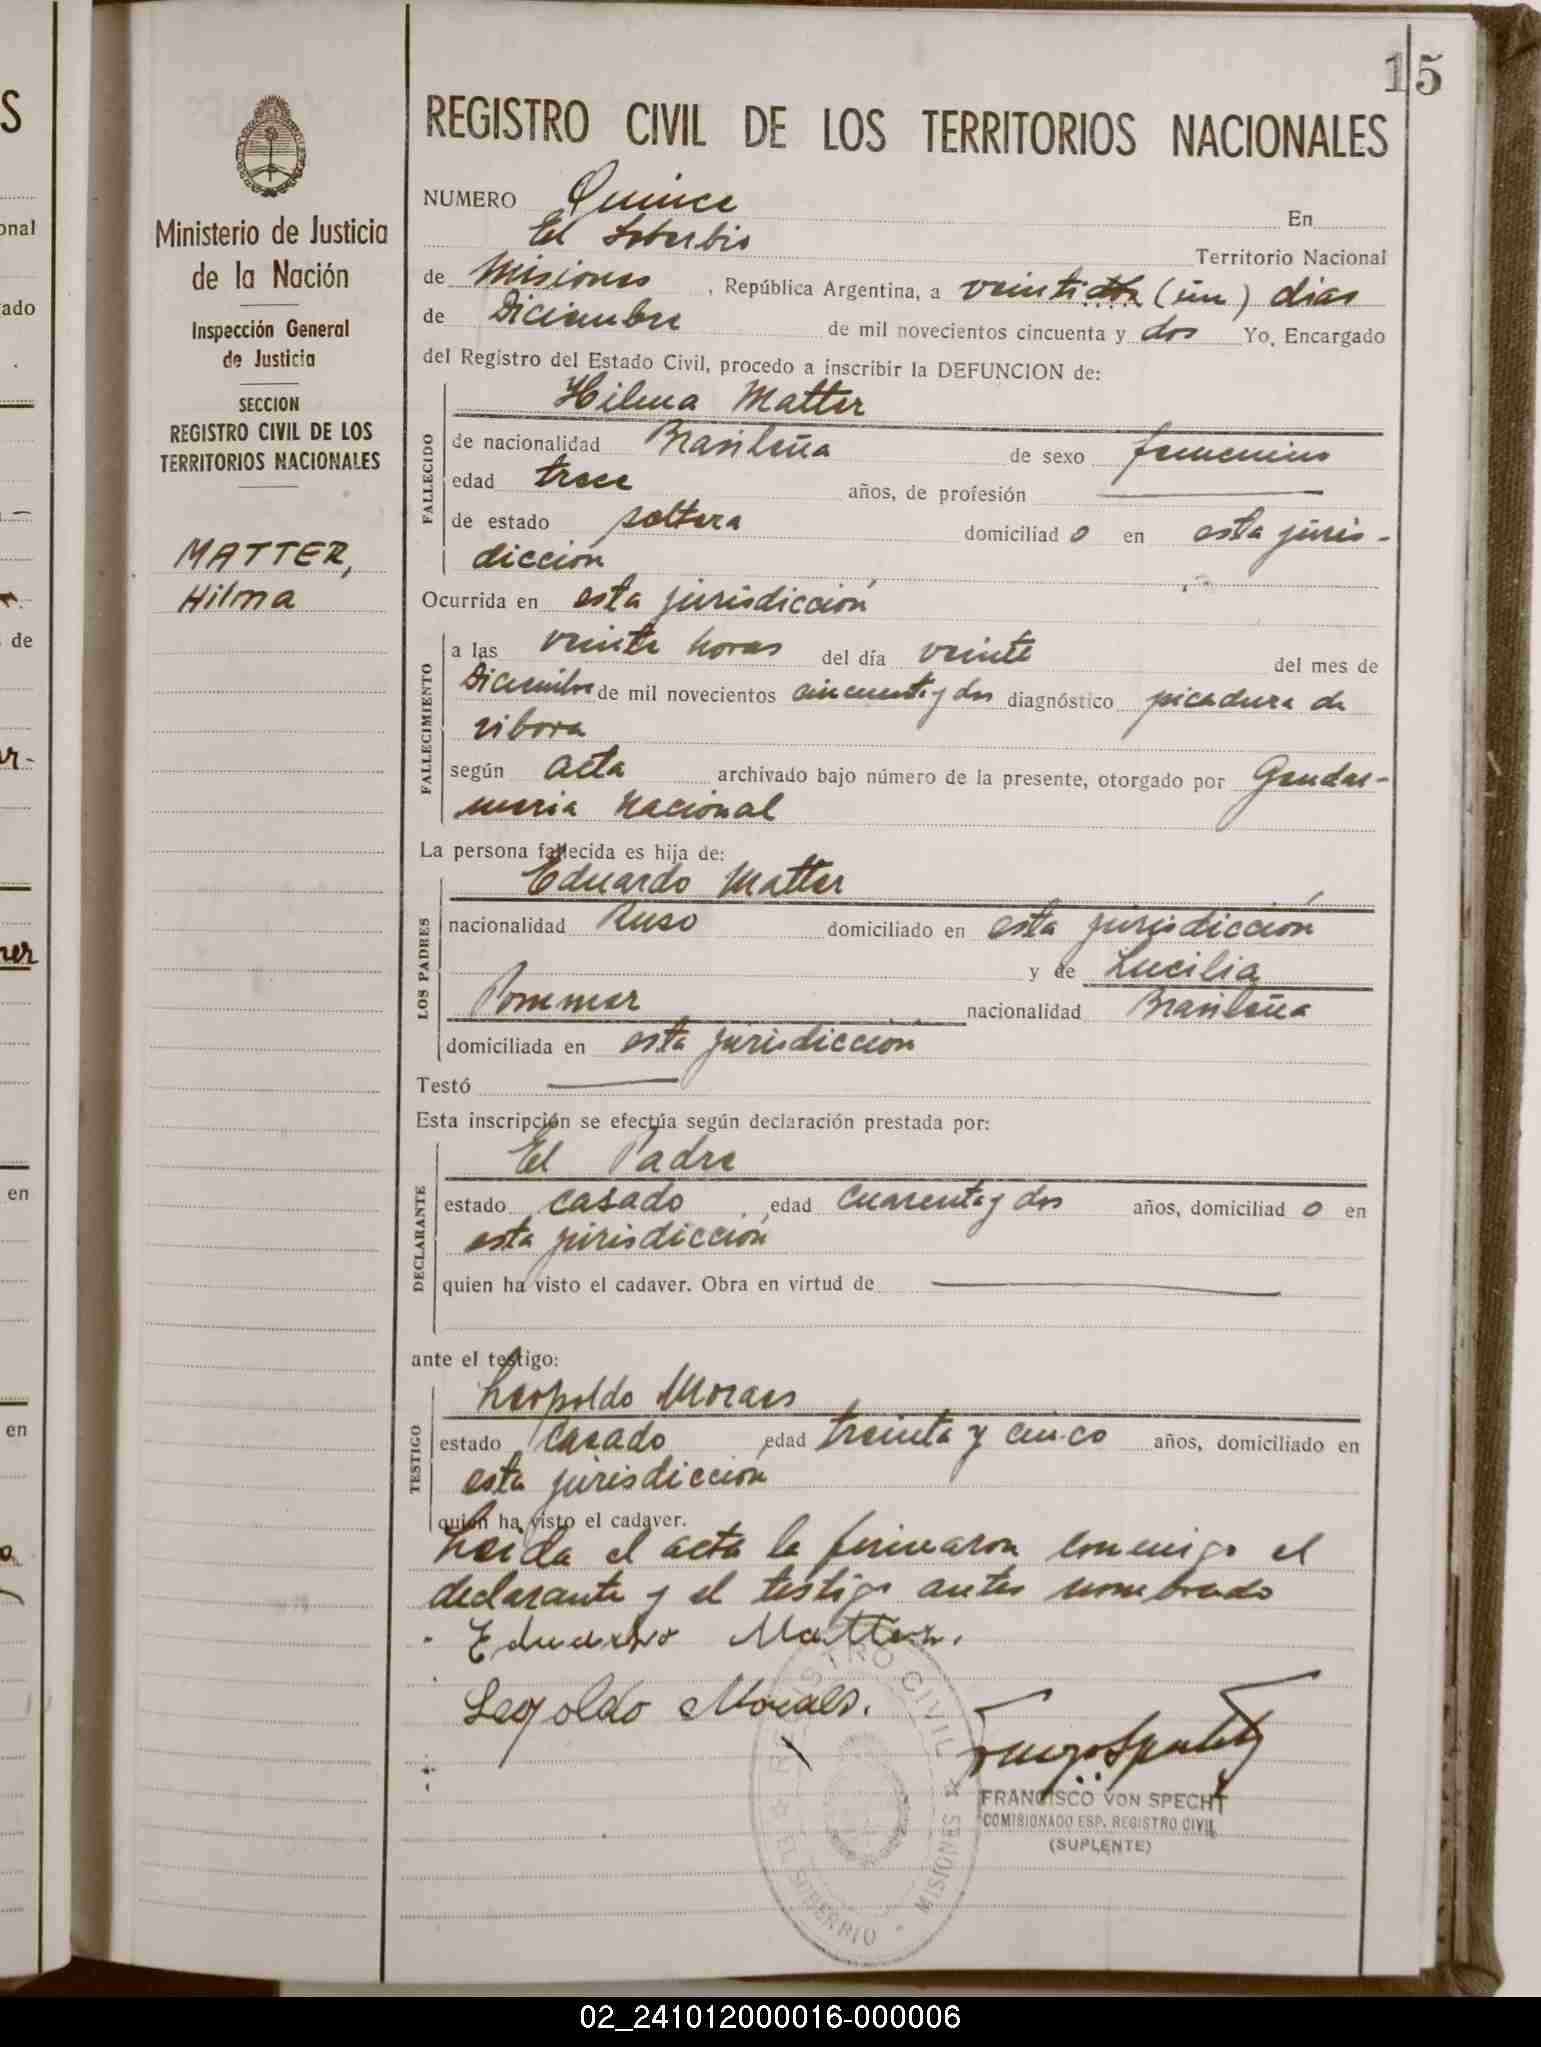 15
Ministerio de Justicia
de la Nación
Inspección General
de Justicia
SECCION
REGISTRO CIVIL DE LOS
TERRITORIOS NACIONALES
MATTER,
Hilma
REGISTRO CIVIL DE LOS TERRITORIOS NACIONALES
NUMERO Quince En
El Soberbio Territorio Nacional
de Misiones, República Argentina, a veinti (ún) dias
de Diciembre de mil novecientos cincuenta y dos Yo, Encargado
del Registro del Estado Civil, procedo a inscribir la DEFUNCION de:
Hilma Matter
FALLECIDO
de nacionalidad Brasileña de sexo femenino
edad trece años, de profesión
de estado soltera domiciliad o en esta júris-
dicción
Ocurrida en esta jurisdicción
FALLECIMIENTO
a las veinte horas del día veinte del mes de
Diciembre de mil novecientos cincuenta y dos diagnóstico picadura de
vibora
según acta archivado bajo número de la presente, otorgado por Gendar-
meria Nacional
La persona fallecida es hija de:
Eduardo Matter
LOS PADRES
nacionalidad Ruso domiciliado en esta jurisdicción
y de Lucilia
Pommer nacionalidad Brasileña
domiciliada en esta jurisdicción
Testó
Esta inscripción se efectúa según declaración prestada por:
El Padre
DECLARANTE
estado casado edad cuarenta y dos años, domiciliad o en
esta jurisdicción
quien ha visto el cadaver. Obra en virtud de
ante el testigo:
Leopoldo Moraes
TESTIGO
estado casado edad treinta y cinco años, domiciliado en
esta jurisdicción
quien ha visto el cadaver.
Leida el acta la firmaron conmigo el
declarante y el testigo antes nombrado
Eduardo Matter.
Leopoldo Moraes.
REGISTRO CIVIL
EL SOBERBIO - MISIONES
FRANCISCO VON SPECHT
COMISIONADO ESP. REGISTRO CIVIL
(SUPLENTE)
02_241012000016-000006